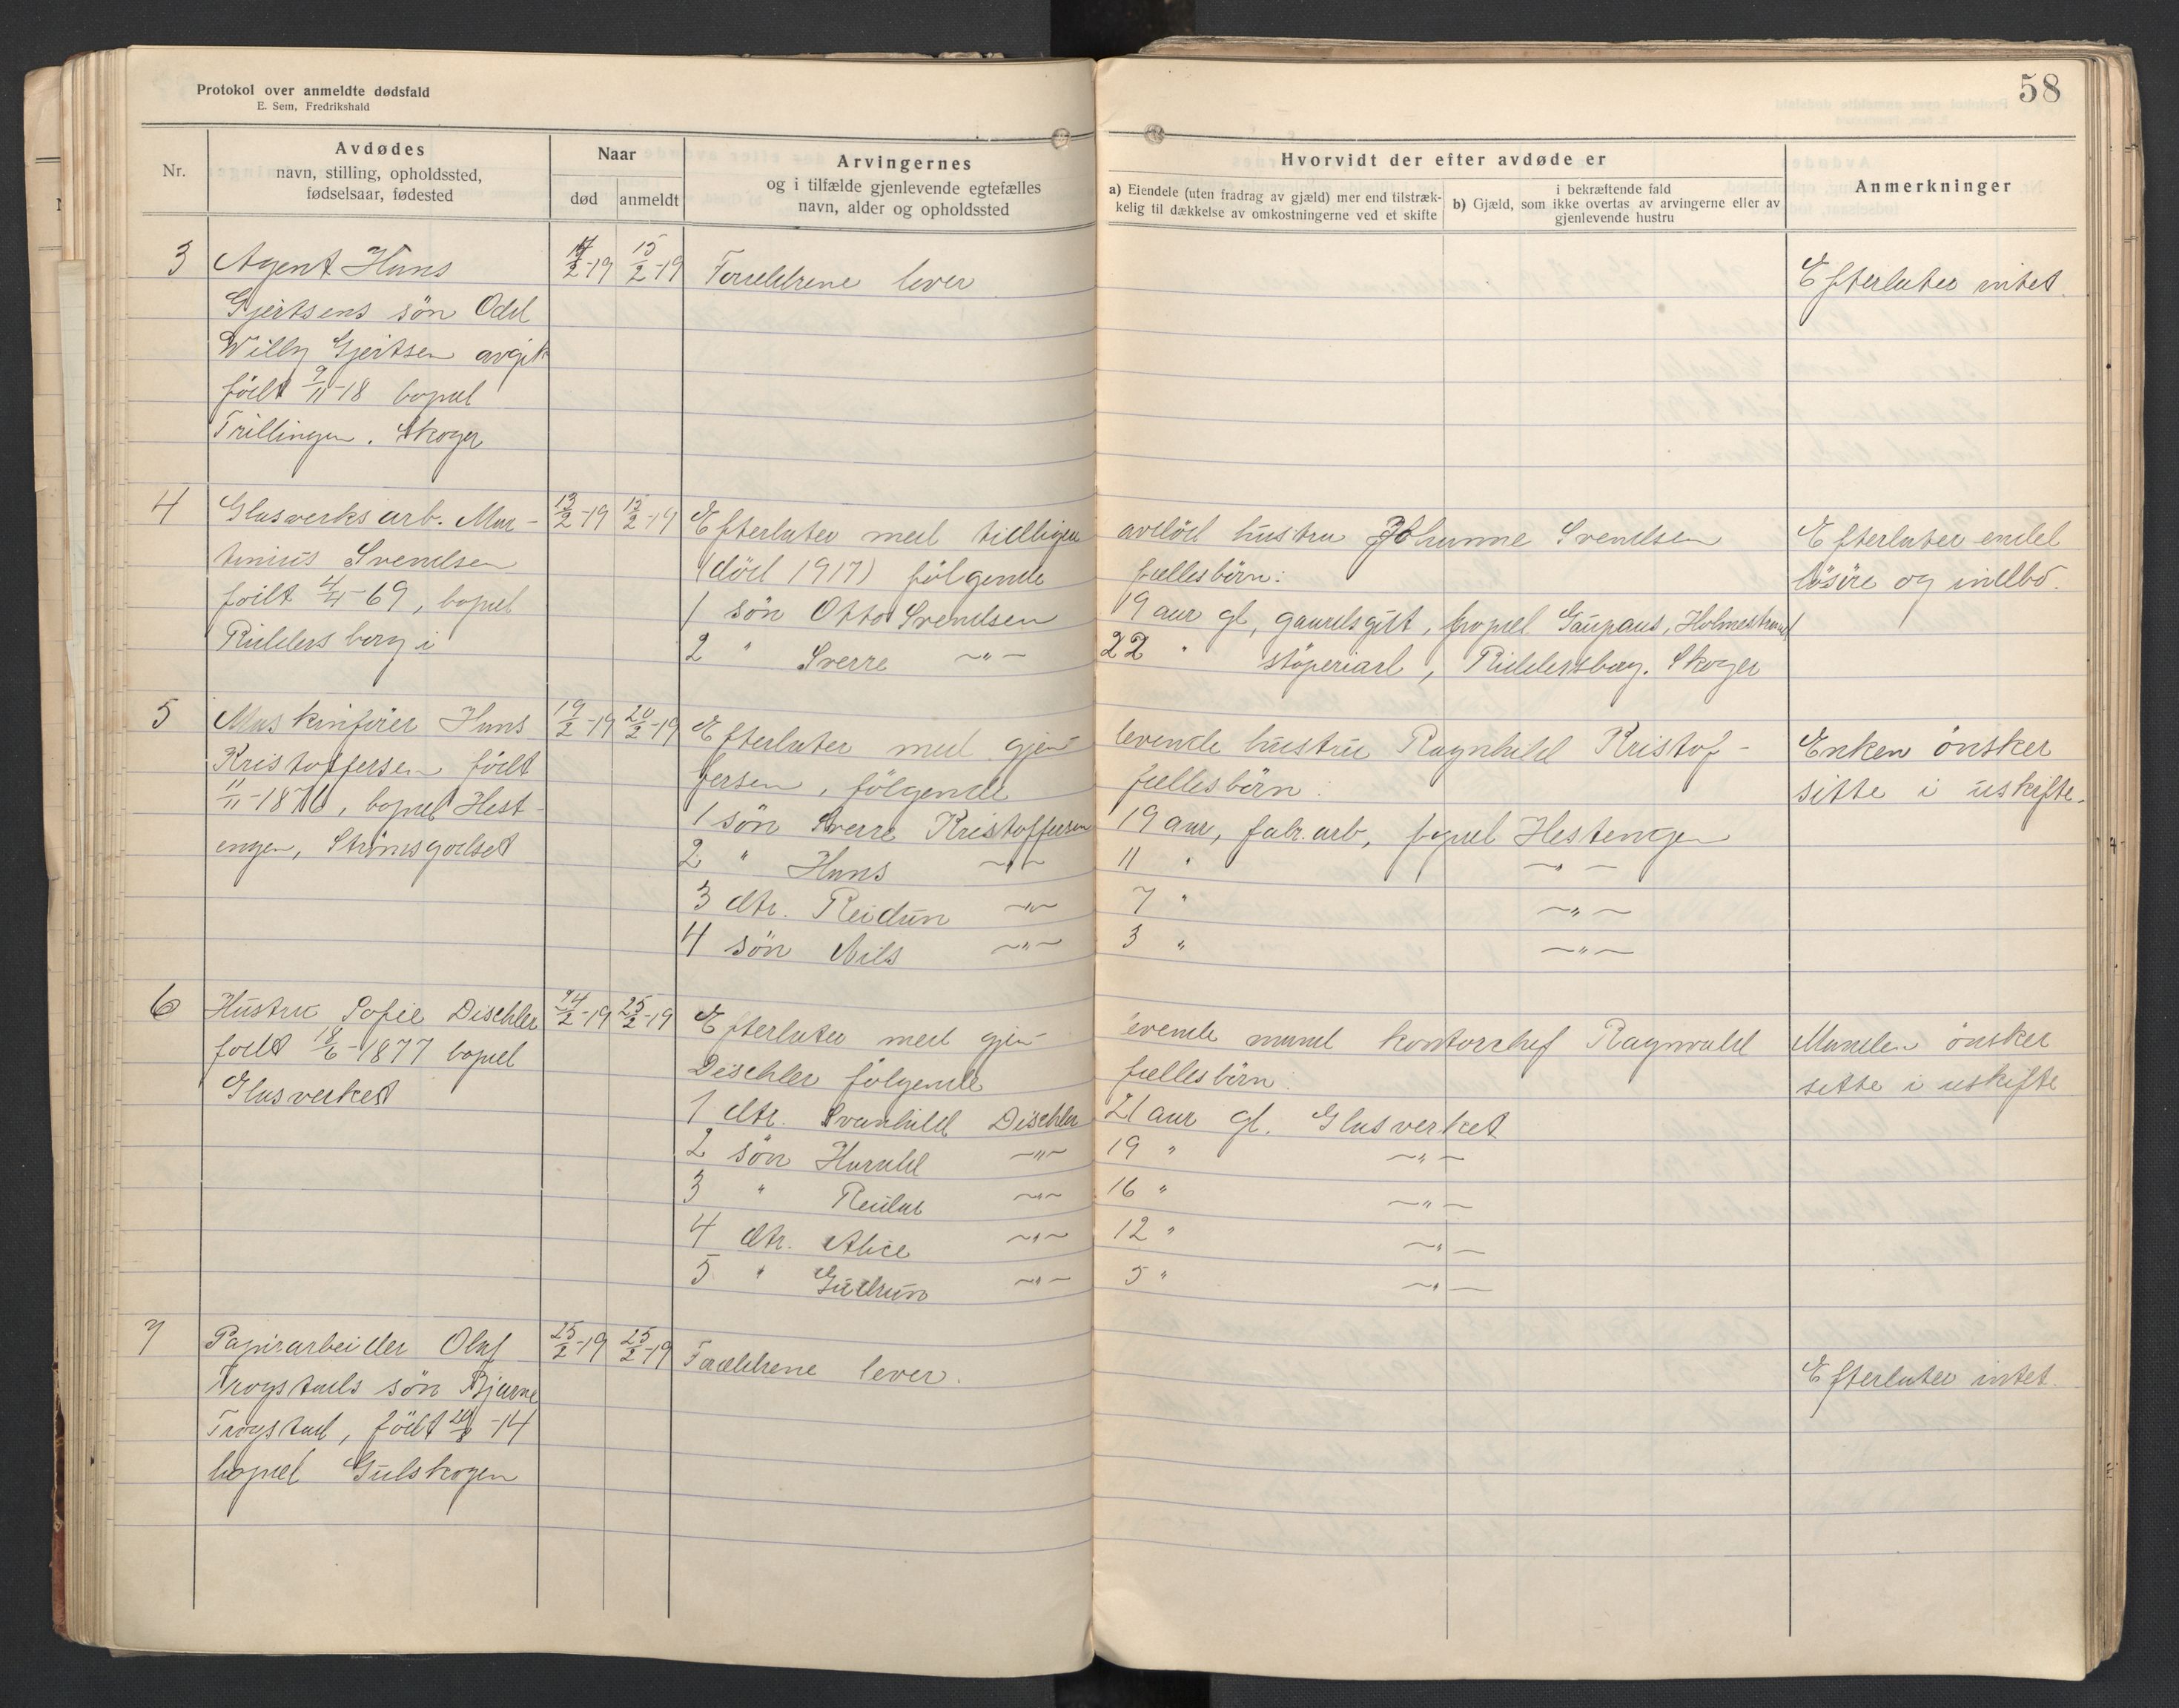 58
Protokol over anmeldte dødsfald
E. Sem, Fredrikshald
Nr.
Avdødes
navn, stilling, opholdssted,
fødselsaar, fødested
Naar
død anmeldt
Arvingernes
og i tilfælde gjenlevende egtefælles
navn, alder og opholdssted
Hvorvidt der efter avdøde er
a) Eiendele (uten fradrag av gjæld) mer end tilstræk-
kelig til dækkelse av omkostningerne ved et skifte
i bekræftende fald
b) Gjæld, som ikke overtas av arvingerne eller av
gjenlevende hustru
Anmerkninger
3 Agent Hans 2-19 15/2-19 Forældrene lever Efterlater intet
Gjertsens søn Odd
Willy Gjertsen avgik
født 9/11-18 bopæl
Trillingen. Skoger
4 Glasverksarb. Mar- 13/2-19 15/2-19 Efterlater med tidligere avdød hustru Johanne Svendsen Efterlater endel
tinius Svendsen (død 1917) følgende fællesbörn: lösöre og indbo.
født 4/4-69, bopæl 1 søn Otto Svendsen 19 aar gl, gaardsgut, bopæl Gaupaus, Holmestrand
Riddersberg i 2 " Sverre -"- 22 " støperiarb, Riddersberg. Skoger
5 Maskinfører Hans 19/2-19 20/2-19 Efterlater med gjen- levende hustru Ragnhild Kristof- Enken ønsker
Kristoffersen født fersen, følgende fællesbörn. sitte i uskifte.
11/11-1876, bopæl Hest- 1 søn Sverre Kristoffersen 19 aar, fabr. arb, bopæl Hestengen
engen, Strømsgodset 2 " Hans -"- 11 " -"-
3 dtr. Reidun -"- 7 " -"-
4 søn Nils -"- 3 " -"-
6 Hustru Sofie Dischler 24/2-19 25/2-19 Efterlater med gjen- levende mand kontorchef Ragnvald Manden ønsker
født 18/6-1877 bopæl Dischler følgende fællesbörn: sitte i uskifte
Glasverket 1 dtr. Svanhild Dischler 21 aar gl. Glasverket
2 søn Harald -"- 19 " -"-
3 " Reidar -"- 16 " -"-
4 dtr. Alice -"- 12 " -"-
5 " Gudrun -"- 5 " -"-
7 Papirarbeider Olaf 25/2-19 25/2-19 Forældrene lever. Efterlater intet.
Trogstads søn Bjarne
Trogstad, født -14
bopæl Gulskogen